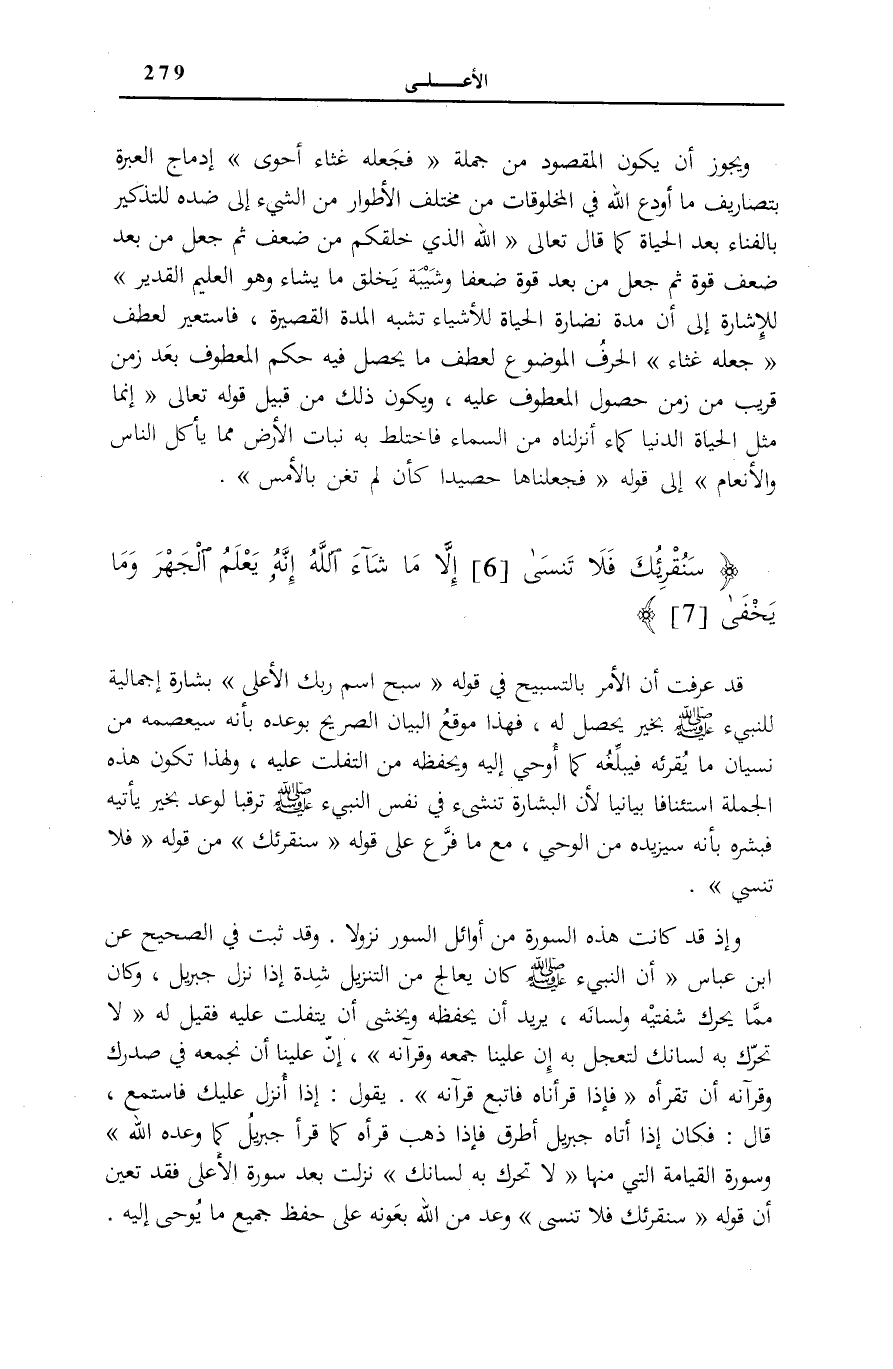 279
الأعـــلـى
ويجوز أن يكون المقصود من جملة « فجَعله غثاء أحوى » إدماج العبرة
بتصاريف ما أودع الله في المخلوقات من مختلف الأطوار من الشيء إلى ضده للتذكير
بالفناء بعد الحياة كما قال تعالى « الله الذي خلقكم من ضعف ثم جعل من بعد
ضعف قوة ثم جعل من بعد قوة ضعفا وشَيْبَة يَخلق ما يشاء وهو العليم القدير »
للإِشارة إلى أن مدة نضارة الحياة للأشياء تشبه المدة القصيرة ، فاستعير لعطف
« جعله غثاء » الحرفُ الموضوع لعطف ما يحصل فيه حكم المعطوف بعَد زمن
قريب من زمن حصول المعطوف عليه ، ويكون ذلك من قبيل قوله تعالى « إنما
مثل الحياة الدنيا كماء أنزلناه من السماء فاختلط به نبات الأرض مما يأكل الناس
والأنعام » إلى قوله « فجعلناها حصيدا كأن لم تغن بالأمس » .
﴿ سَنُقْرِئُكَ فَلَا تَنسَىٰ [6] إِلَّا مَا شَآءَ ٱللَّهُ إِنَّهُۥ يَعْلَمُ ٱلْجَهْرَ وَمَا
يَخْفَىٰ [7] ﴾
قد عرفت أن الأمر بالتسبيح في قوله « سبح اسم ربك الأعلى » بشارة إجمالية
للنبيء ﷺ بخير يحصل له ، فهذا موقعُ البيان الصريح بوعده بأنه سيعصمه من
نسيان ما يُقرئه فيبلِّغُه كما أُوحي إليه ويحفظه من التفلت عليه ، ولهذا تكون هذه
الجملة استئنافا بيانيا لأن البشارة تنشىء في نفس النبيء ﷺ ترقبا لوعد بخير يأتيه
فبشره بأنه سيزيده من الوحي ، مع ما فرَّع على قوله « سنقرئك » من قوله « فلا
تنسي » .
وإذ قد كانت هذه السورة من أوائل السور نزولا . وقد ثبت في الصحيح عن
ابن عباس « أن النبيء ﷺ كان يعالج من التنزيل شِدة إذا نزل جبريل ، وكان
ممَّا يحرك شفتيْه ولسانَه ، يريد أن يحفظه ويخشى أن يتفلت عليه فقيل له « لا
تحرّك به لسانك لتعجل به إن علينا جمعه وقرآنه » ، إنّ علينا أن نجمعه في صدرك
وقرآنه أن تقرأه « فإذا قرأناه فاتبع قرآنه » . يقول : إذا أُنزل عليك فاستمع ،
قال : فكان إذا أتاه جبريل أطرق فإذا ذهب قرأه كما قرأ جبريلُ كما وعده الله »
وسورة القيامة التي منها « لا تحرك به لسانك » نزلت بعد سورة الأعلى فقد تعين
أن قوله « سنقرئك فلا تنسى » وعد من الله بعَونه على حفظ جميع ما يُوحى إليه .